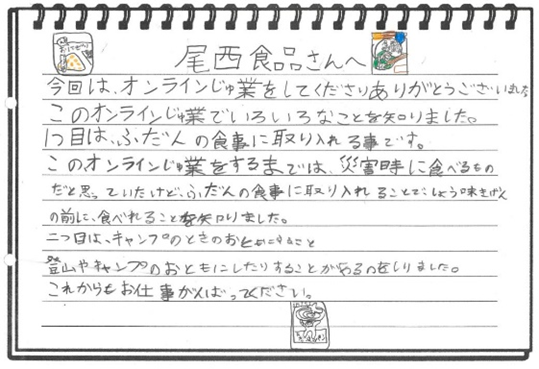 尾西食品さんへ
今回は、オンラインじゅ業をしてくださりありがとうございました
このオンラインじゅ業でいろいろなことを知りました。
1つ目は、ふだんの食事に取り入れる事です。
このオンラインじゅ業をするまでは、災害時に食べるもの
だと思っていたけど、ふだんの食事に取り入れることでしょう味きげん
の前に、食べれることを知りました。
二つ目は、キャンプのときのおともにすること
登山やキャンプのおともにしたりすることがあるのをしりました。
これからもお仕事がんばってください。